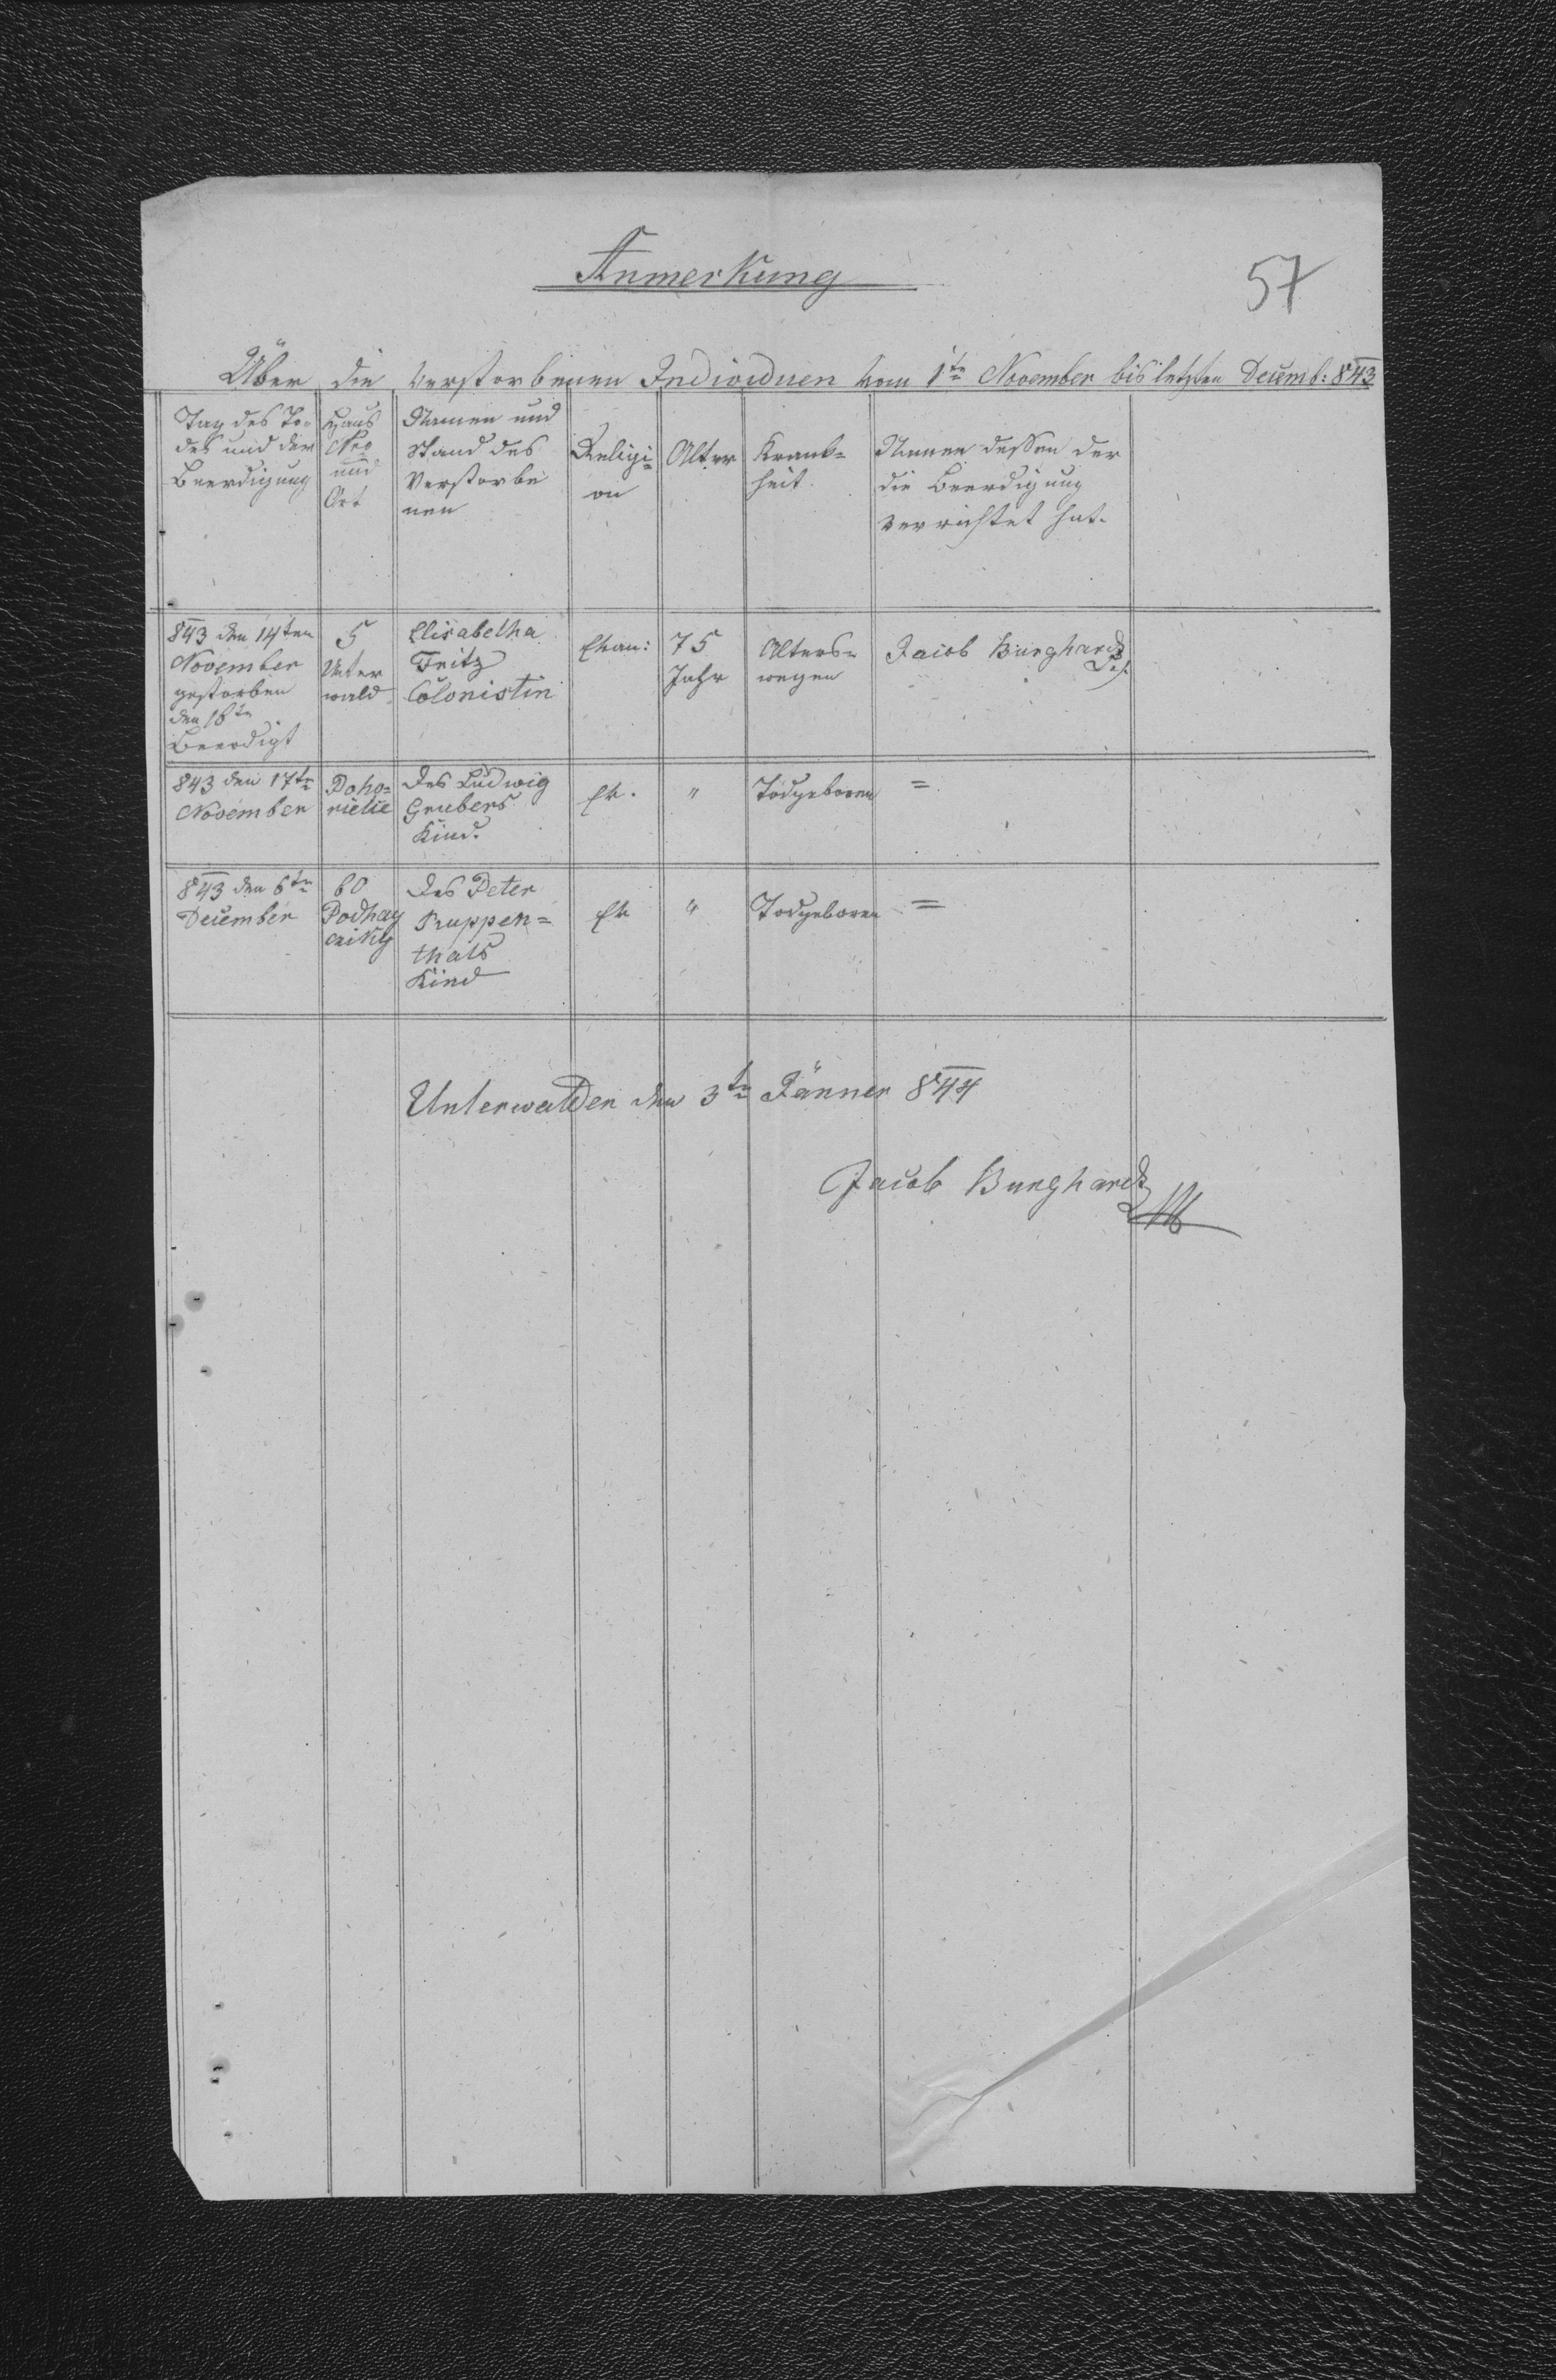 Anmerkung
57
Über die verstorbenen Individuen vom 1ten November bis letzten Decemb: 843
Tag des To-
des und der
Beerdigung
Haus
Nro
und
Ort
Namen und
Stand des
Verstorbe
nen
Religi-
on
Alter
Krank-
heit
Namen dessen der
die Beerdigung
verrichtet hat.
843 den 14ten
November
gestorben
den 16ten
Beerdigt
5
Unter
wald
Elisabetha
Fritz
Colonistin
Evan:
75
Jahr
Alters-
wegen
Jacob Burghardt
843 den 17ten
November
Poho-
rielie
Des Ludwig
Grubers
Kind.
Ev.
"
Todgeboren
=
843 den 6ten
December
60
Podhay
cziky
Des Peter
Ruppen=
thals
Kind
Ev
"
Todgeboren
=
Unterwalden den 3ten Jänner 844
Jacob Burghardt